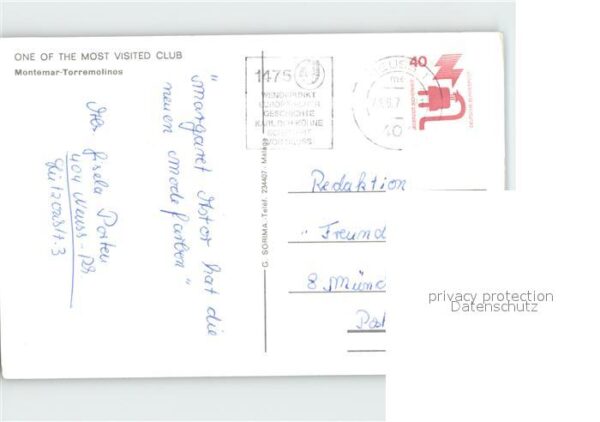 ONE OF THE MOST VISITED CLUB
Montemar-Torremolinos
"Margaret Astor hat die
neuen Modefarben"
Gisela Porten
404 Neuss-
G. SORIMA - Telef. 234407 - Malaga
1475
WENDEPUNKT
EUROPÄISCHER
GESCHICHTE
KARL DER KÜHNE
VOR NEUSS
40
40
Redaktion
"Freund
8 Münc
Post
privacy protection
Datenschutz